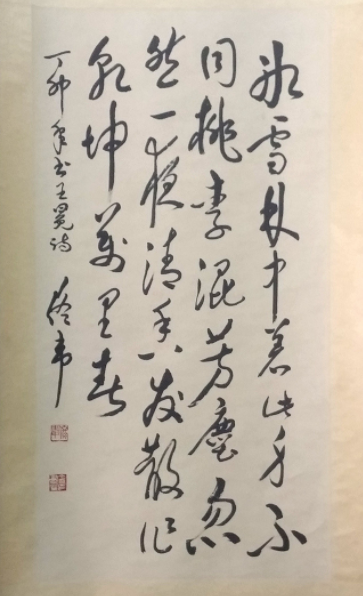 冰雪林中着此身不
同桃李混芳塵忽
然一夜清香发散作
乾坤萬里春
丁卯年书王冕诗 佟韦